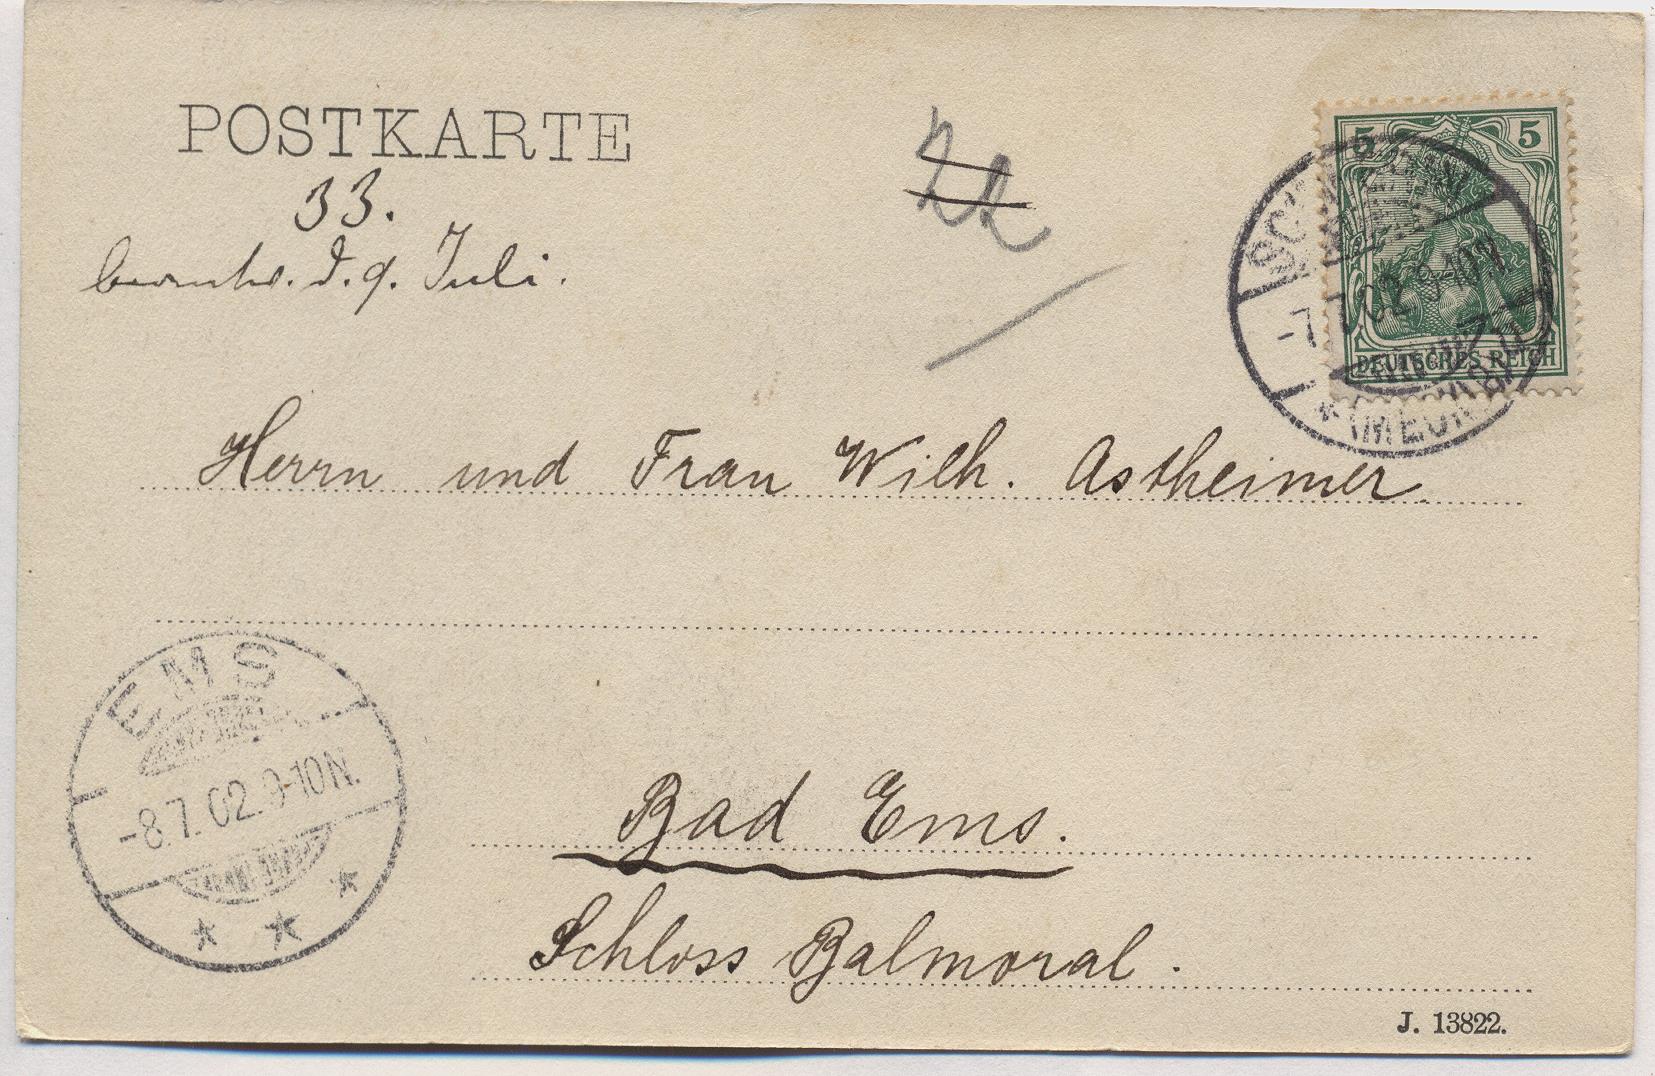 POSTKARTE
33.
beantw. d. 9. Juli.
5 5
DEUTSCHES REICH
-7.7.02 9-10N
Herrn und Frau Wilh. Astheimer
EMS
-8.7.02.9-10N.
Bad Ems.
Schloss Balmoral.
J. 13822.